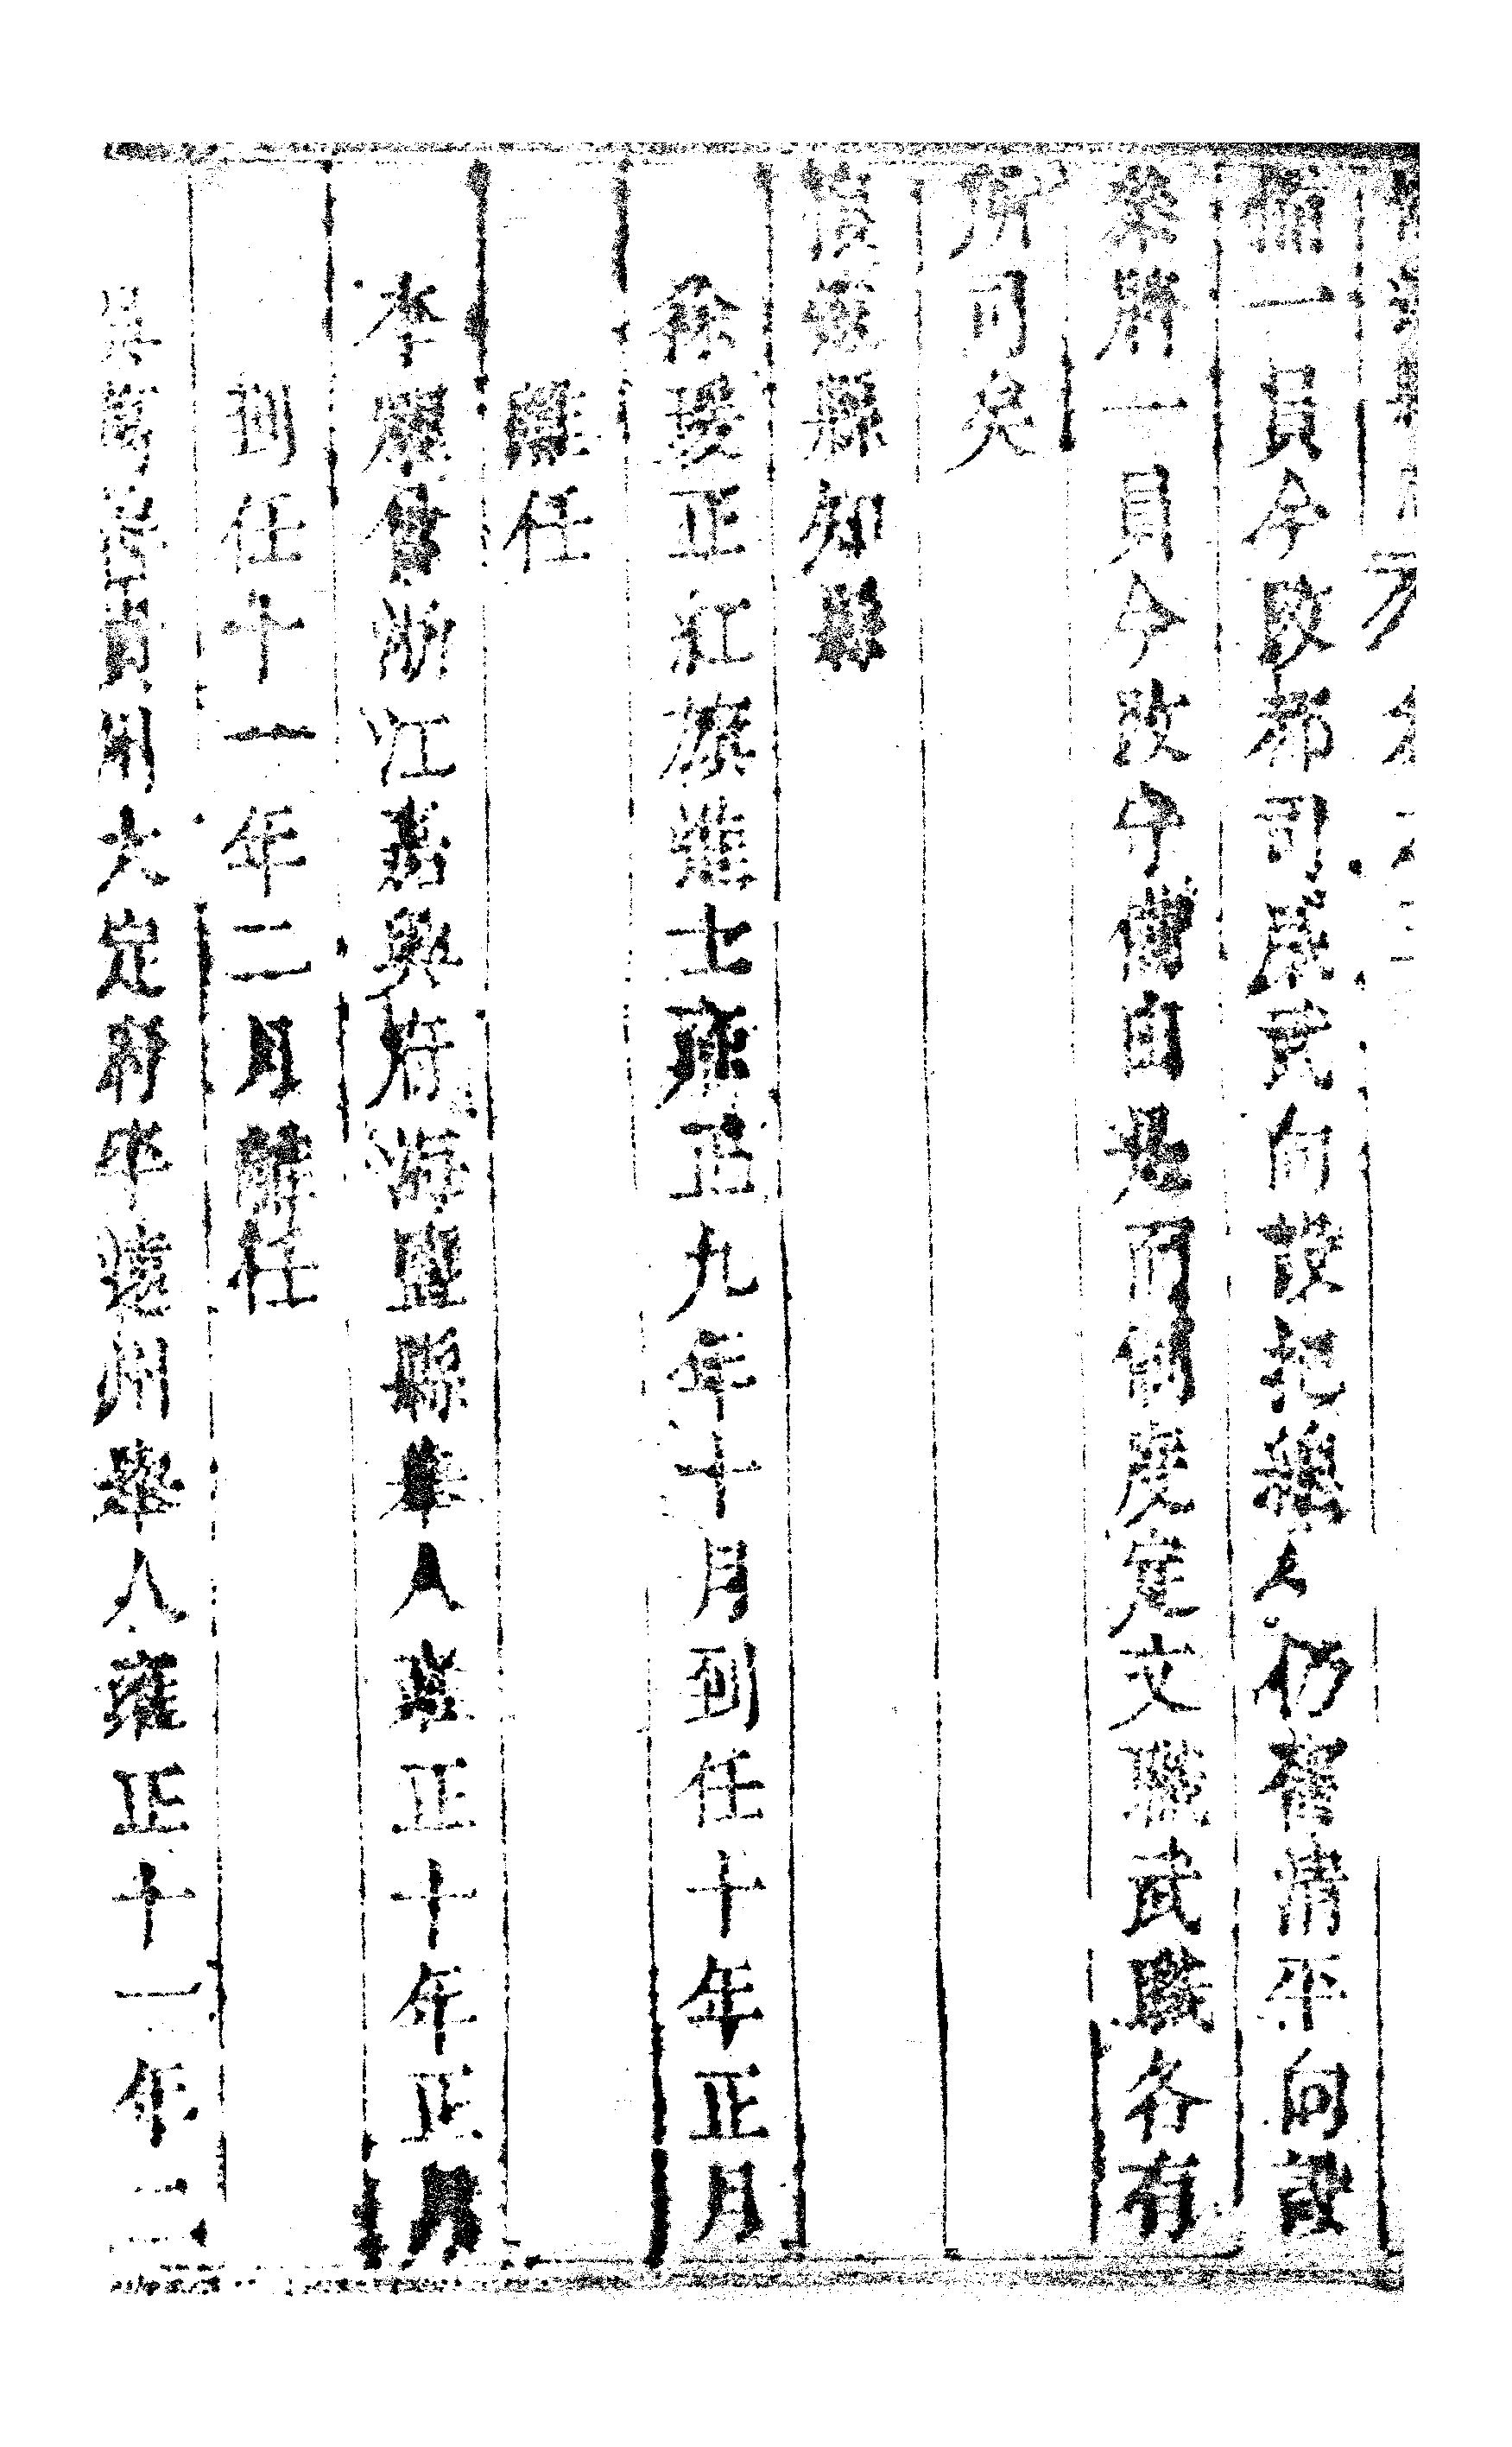 備一員今改都司為武向設把總人仍舊清平向設
參將一員今改守備自是而制度定文職武職各有
所司矣
懷遠縣知縣
徐瑗正紅旗進士雍正九年十月到任十年正月
離任
李曾浙江嘉興府海鹽縣舉人雍正十年正月
到任十一年二月離任
貴州大定府平遠州舉人雍正十一年二